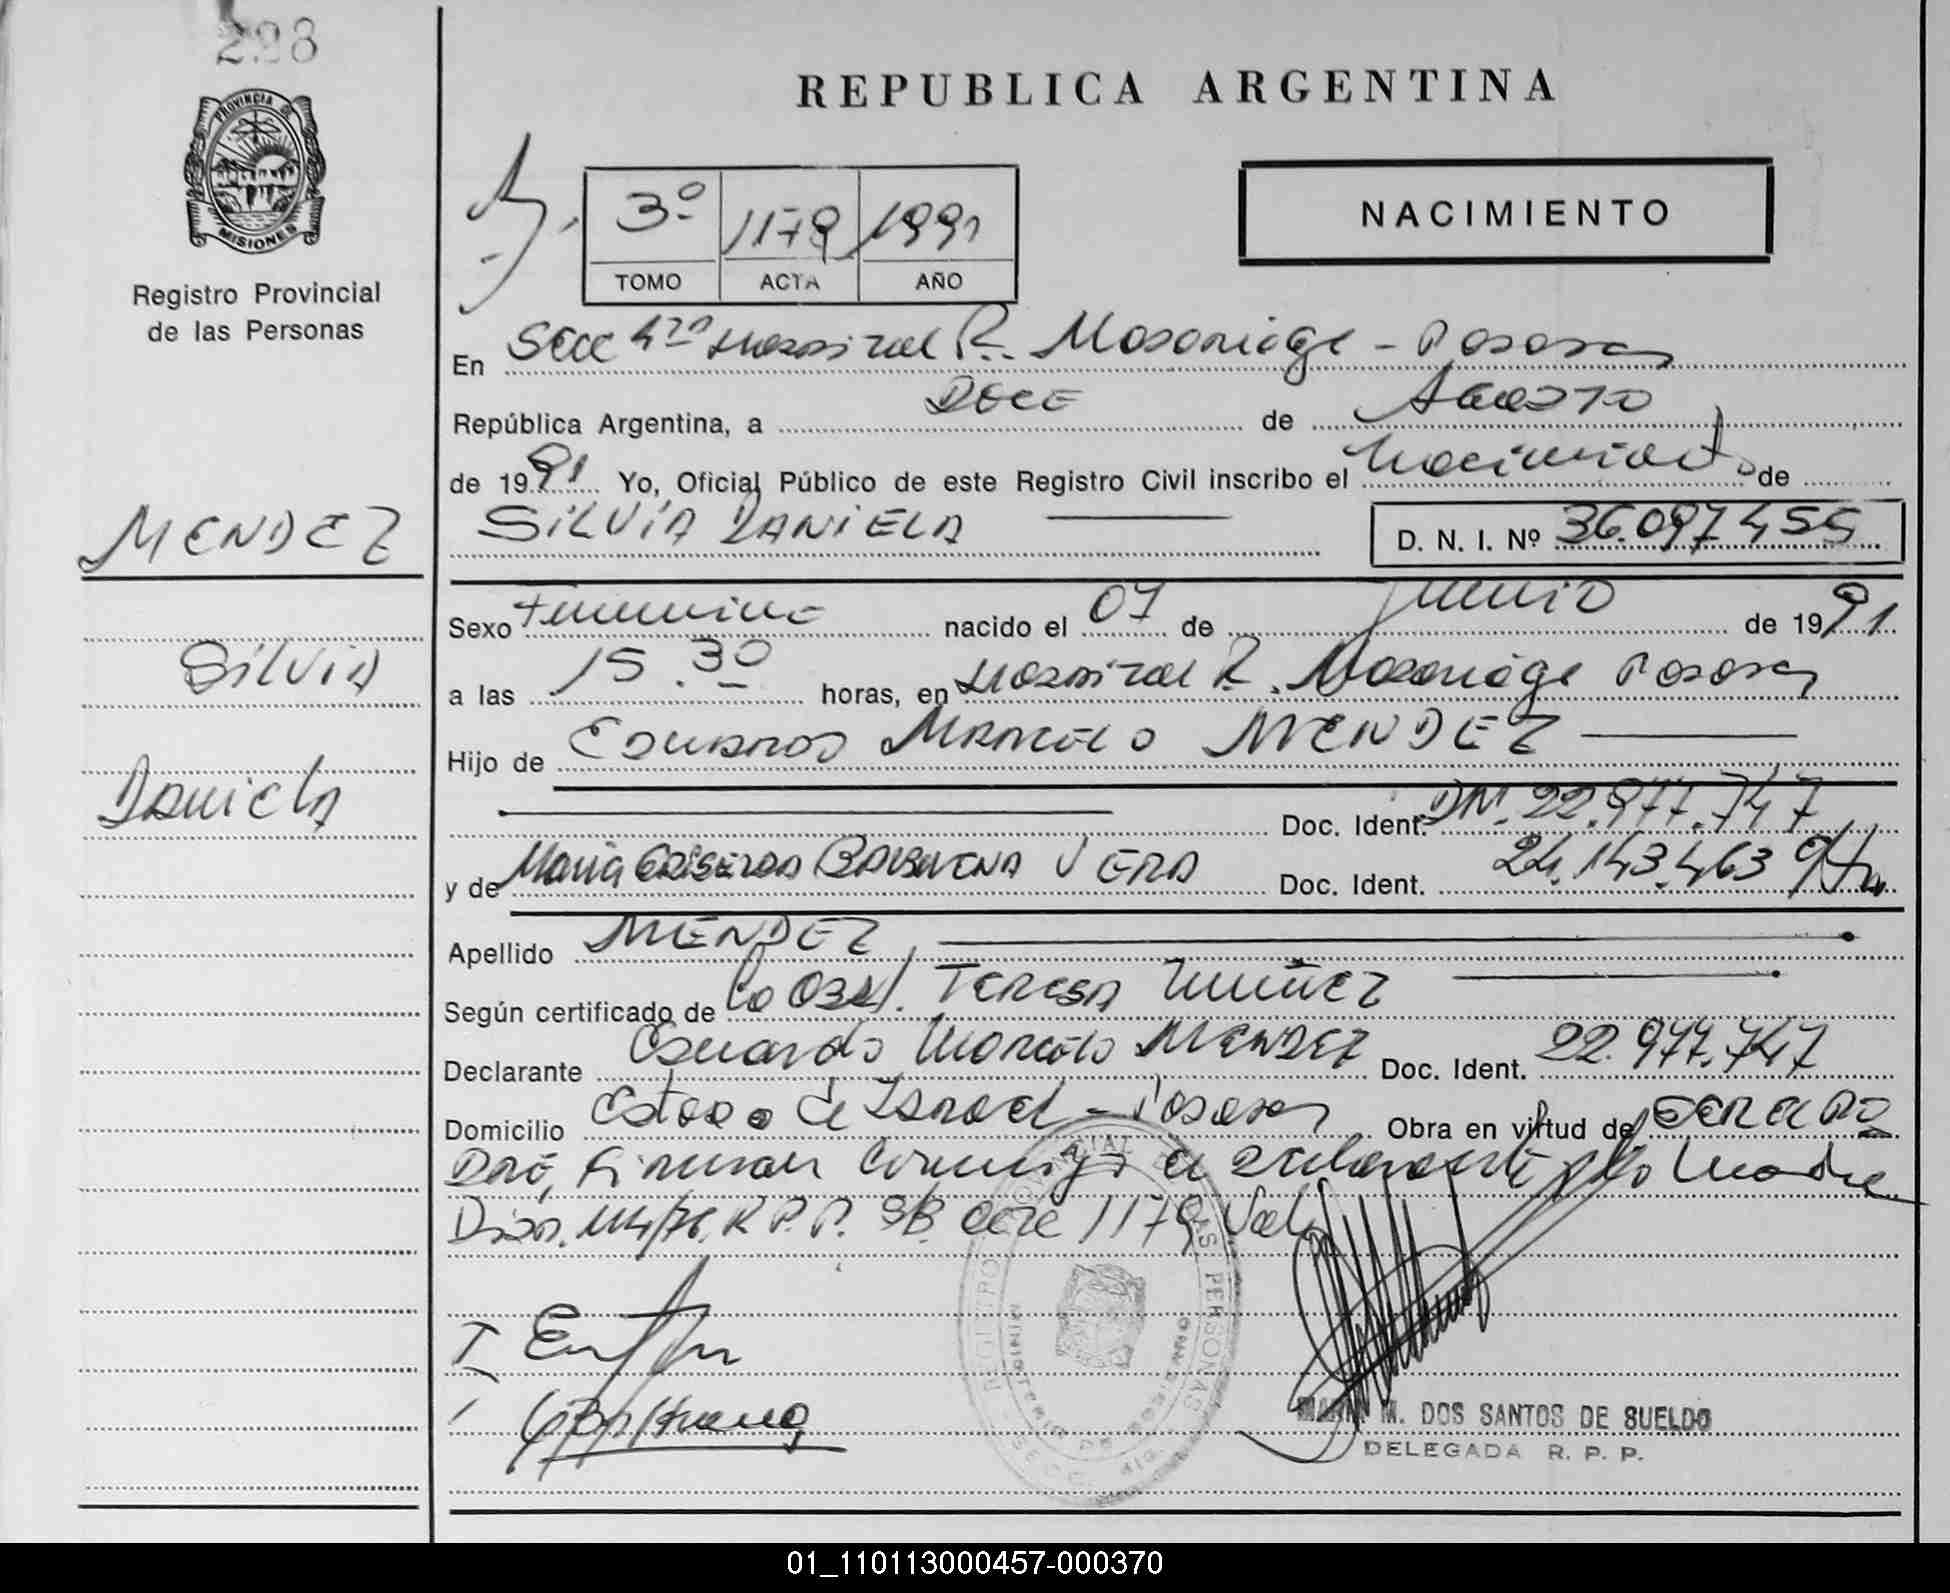 298
PROVINCIA DE
MISIONES
Registro Provincial
de las Personas
MENDEZ
Silvia
Daniela
REPUBLICA ARGENTINA
3º 1179 1991
TOMO ACTA AÑO
NACIMIENTO
En Secc 4ta Hospital R. Madariaga - Posadas
República Argentina, a DOCE de AGOSTO
de 1991 Yo, Oficial Público de este Registro Civil inscribo el Nacimiento de
SILVIA DANIELA D. N. I. Nº 36.097455
Sexo Femenino nacido el 07 de Junio de 1991
a las 15.30 horas, en Hospital R. Madariaga Posadas
Hijo de EDUARDO MARCELO MENDEZ
Doc. Ident. DNI. 22.977.747
y de Maria GRISELDA BALBUENA VERA Doc. Ident. 24.143.463
Apellido MENDEZ
Según certificado de la Obst. TERESA NUÑEZ
Declarante Eduardo Marcelo MENDEZ Doc. Ident. 22.977.747
Domicilio Estado de Israel - Posadas Obra en virtud de SER EL PA
DRE, Firman conmigo el declarante y la Madre
Disp. 114/76 R.P.P. S/B acte 1179 Vale
REGISTRO PROVINCIAL DE LAS PERSONAS
MINISTERIO DE GOBIERNO
SECC.
M. DOS SANTOS DE SUELDO
DELEGADA R. P. P.
01_110113000457-000370